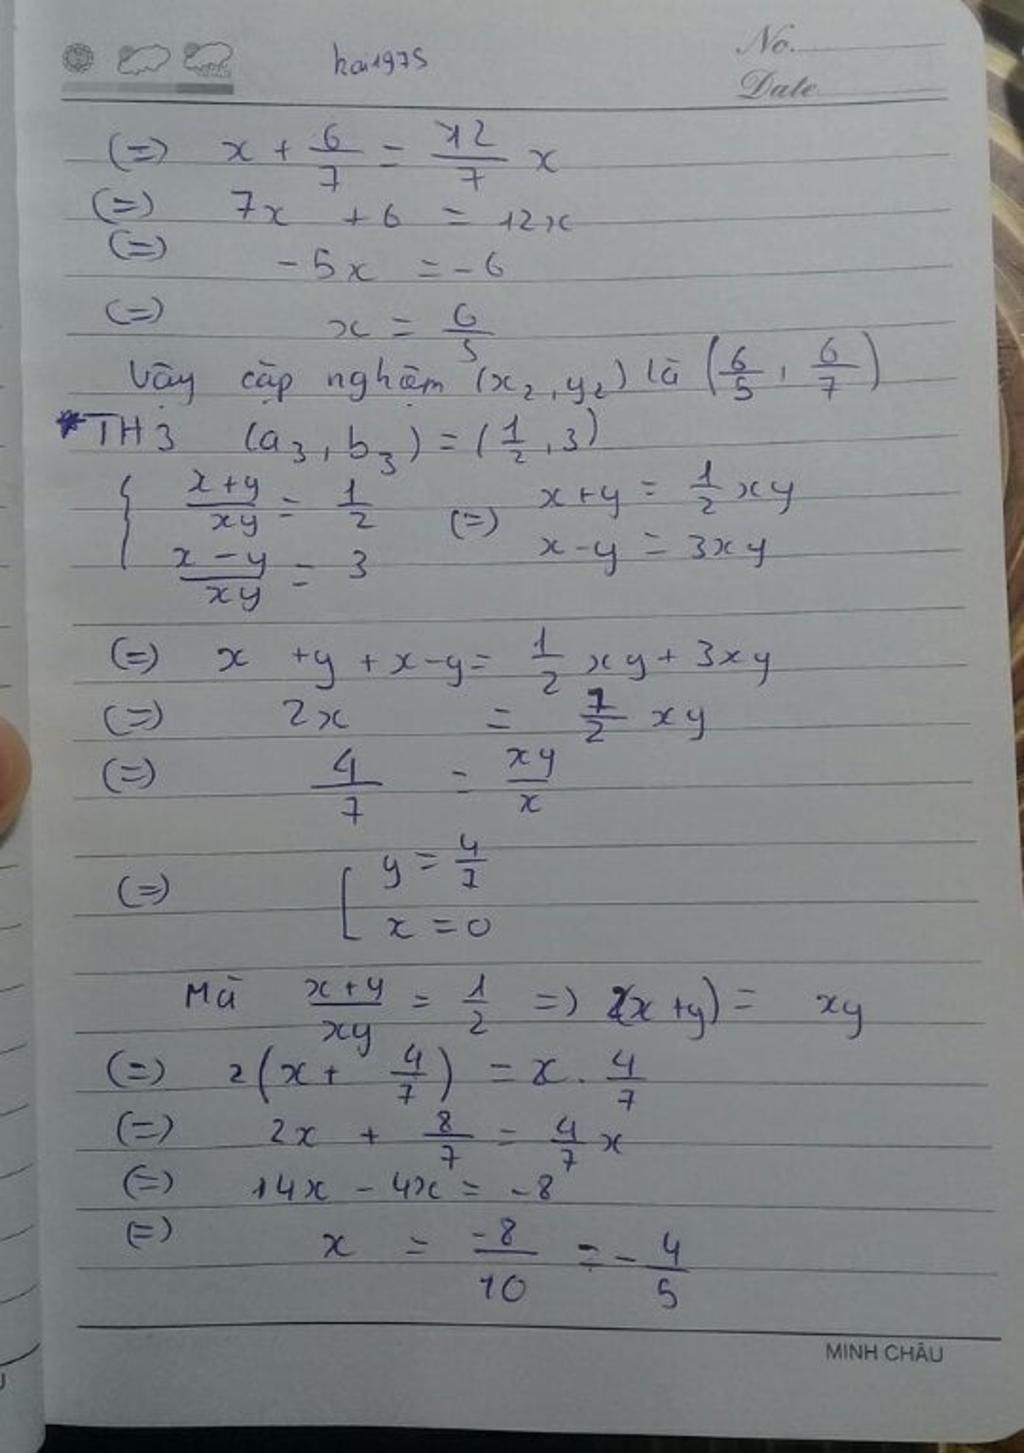 hai1975
No.
Date
(=) x + 6/7 = 12/7 x
(=) 7x + 6 = 12x
(=) -5x = -6
(=) x = 6/5
Vậy cặp nghiệm (x₂, y₂) là (6/5, 6/7)
*TH3 (a₃, b₃) = (1/2, 3)
{ (x+y)/(xy) = 1/2 (=) x+y = 1/2 xy
(x-y)/(xy) = 3 x-y = 3xy
(=) x + y + x - y = 1/2 xy + 3xy
(=) 2x = 7/2 xy
(=) 4/7 = xy/x
(=) [ y = 4/7
x = 0
Mà (x+y)/(xy) = 1/2 =) 2(x+y) = xy
(=) 2(x + 4/7) = x . 4/7
(=) 2x + 8/7 = 4/7 x
(=) 14x - 4x = -8
(=) x = -8/10 = -4/5
MINH CHÂU